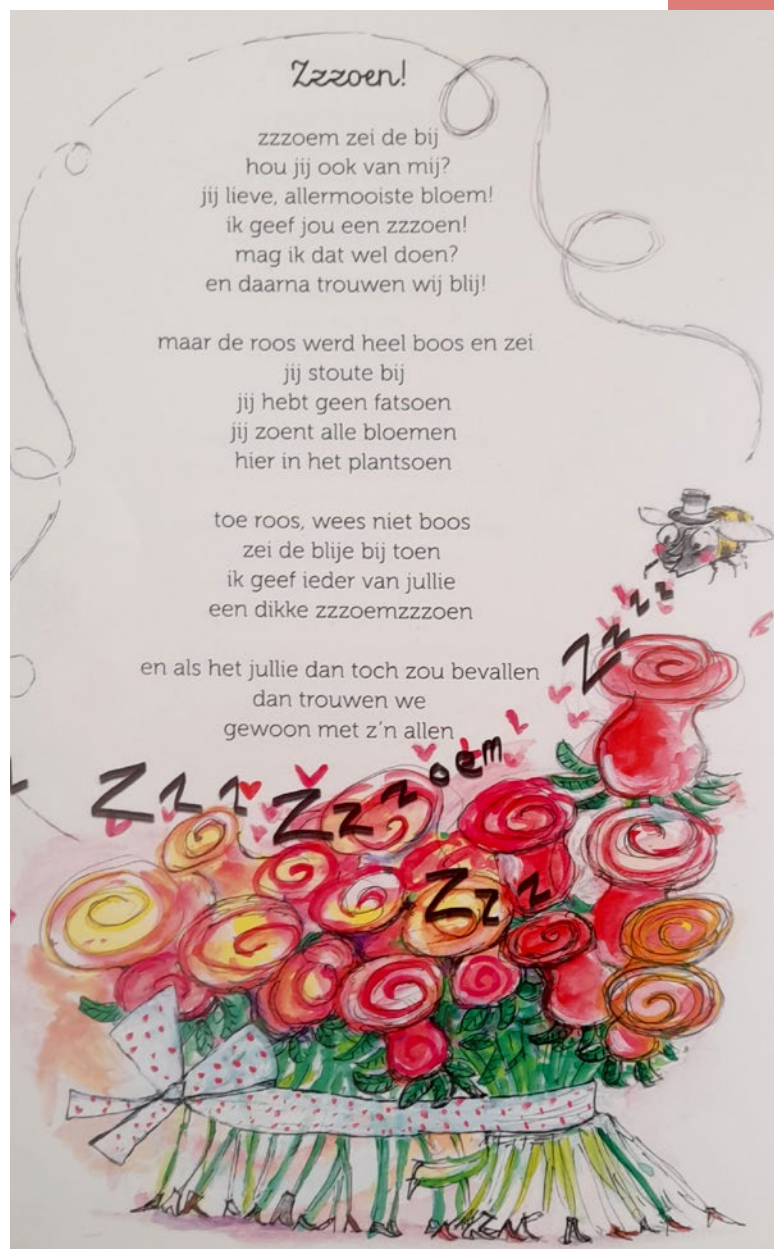 Zzzoen!
zzzoem zei de bij
hou jij ook van mij?
jij lieve, allermooiste bloem!
ik geef jou een zzzoen!
mag ik dat wel doen?
en daarna trouwen wij blij!
maar de roos werd heel boos en zei
jij stoute bij
jij hebt geen fatsoen
jij zoent alle bloemen
hier in het plantsoen
toe roos, wees niet boos
zei de blije bij toen
ik geef ieder van jullie
een dikke zzzoemzzzoen
en als het jullie dan toch zou bevallen
dan trouwen we
gewoon met z'n allen
Zzzz
Zzz Zzzoem
Zzz